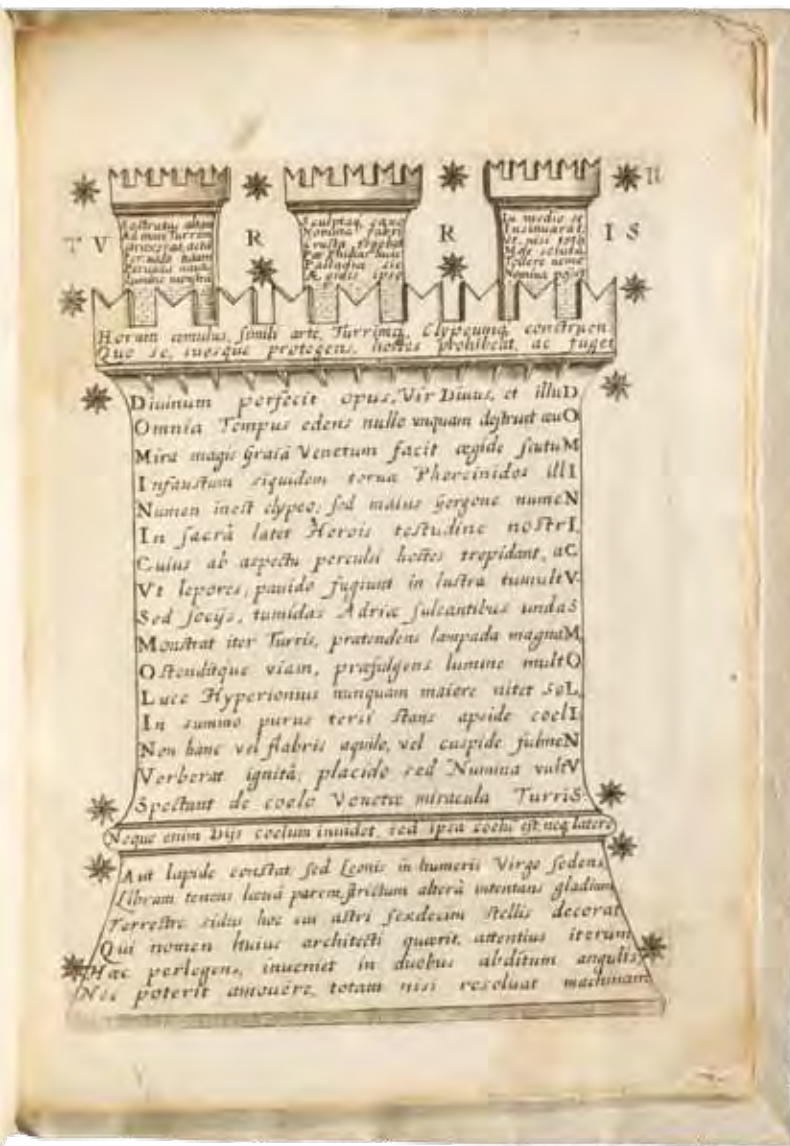 II
TVRRIS
Sostratus altam
Ad mini Turrim
Struxerat, actis
Per uada tutam
Per uias nautis
Lumine monstrans
Sculptaq, caute
Nomina fabri
Crusta tegebat
Par Phidias huic
Palladia sic
Ægidis ipse
In medio se
Insinuarat,
Vt, nisi tota
Mole soluta,
Tollere nemo
Nomina posset
Horum æmulus, simili arte, Turrimq, Clypeumq, construen
Quo se, suosque protegens, hostes prohibeat, ac fuget
Diuinum perfecit opus, Vir Diuus, et illuD
Omnia Tempus edens nullo vnquam destruet æuO
Mira magis Graiâ Venetum facit ægide scutuM
Infaustum siquidem torua Phorcinidos illI
Numen inest clypeo; sed maius Gorgone numeN
In sacrâ latet Herois testudine nostrI,
Cuius ab aspectu perculsi hostes trepidant, aC
Vt lepores, pauido fugiunt in lustra tumultV.
Sed socijs, tumidas Adriæ sulcantibus undaS
Monstrat iter Turris, prætendens lampada magnaM,
Ostenditque viam, præfulgens lumine multO
Luce Hyperionius nunquam maiore nitet SoL,
In summo purus tersi stans apside coelI
Non hanc vel flabris aquilo, vel cuspide fulmeN
Verberat ignitâ; placido sed Numina vultV
Spectant de coelo Venetæ miracula TurriS.
Neque enim Dijs coelum inuidet, sed ipsa coelū est, neq latere
Aut lapide constat, sed Leonis in humeris Virgo sedens
Libram tenens læuâ parem, strictum alterâ intentans gladium
Terrestre sidus hoc ceu astri sexdecim stellis decorat
Qui nomen huius architecti quærit, attentius iterum
Hæc perlegens, inueniet in duobus abditum angulis,
Nec poterit amouere, totam nisi resoluat machinam